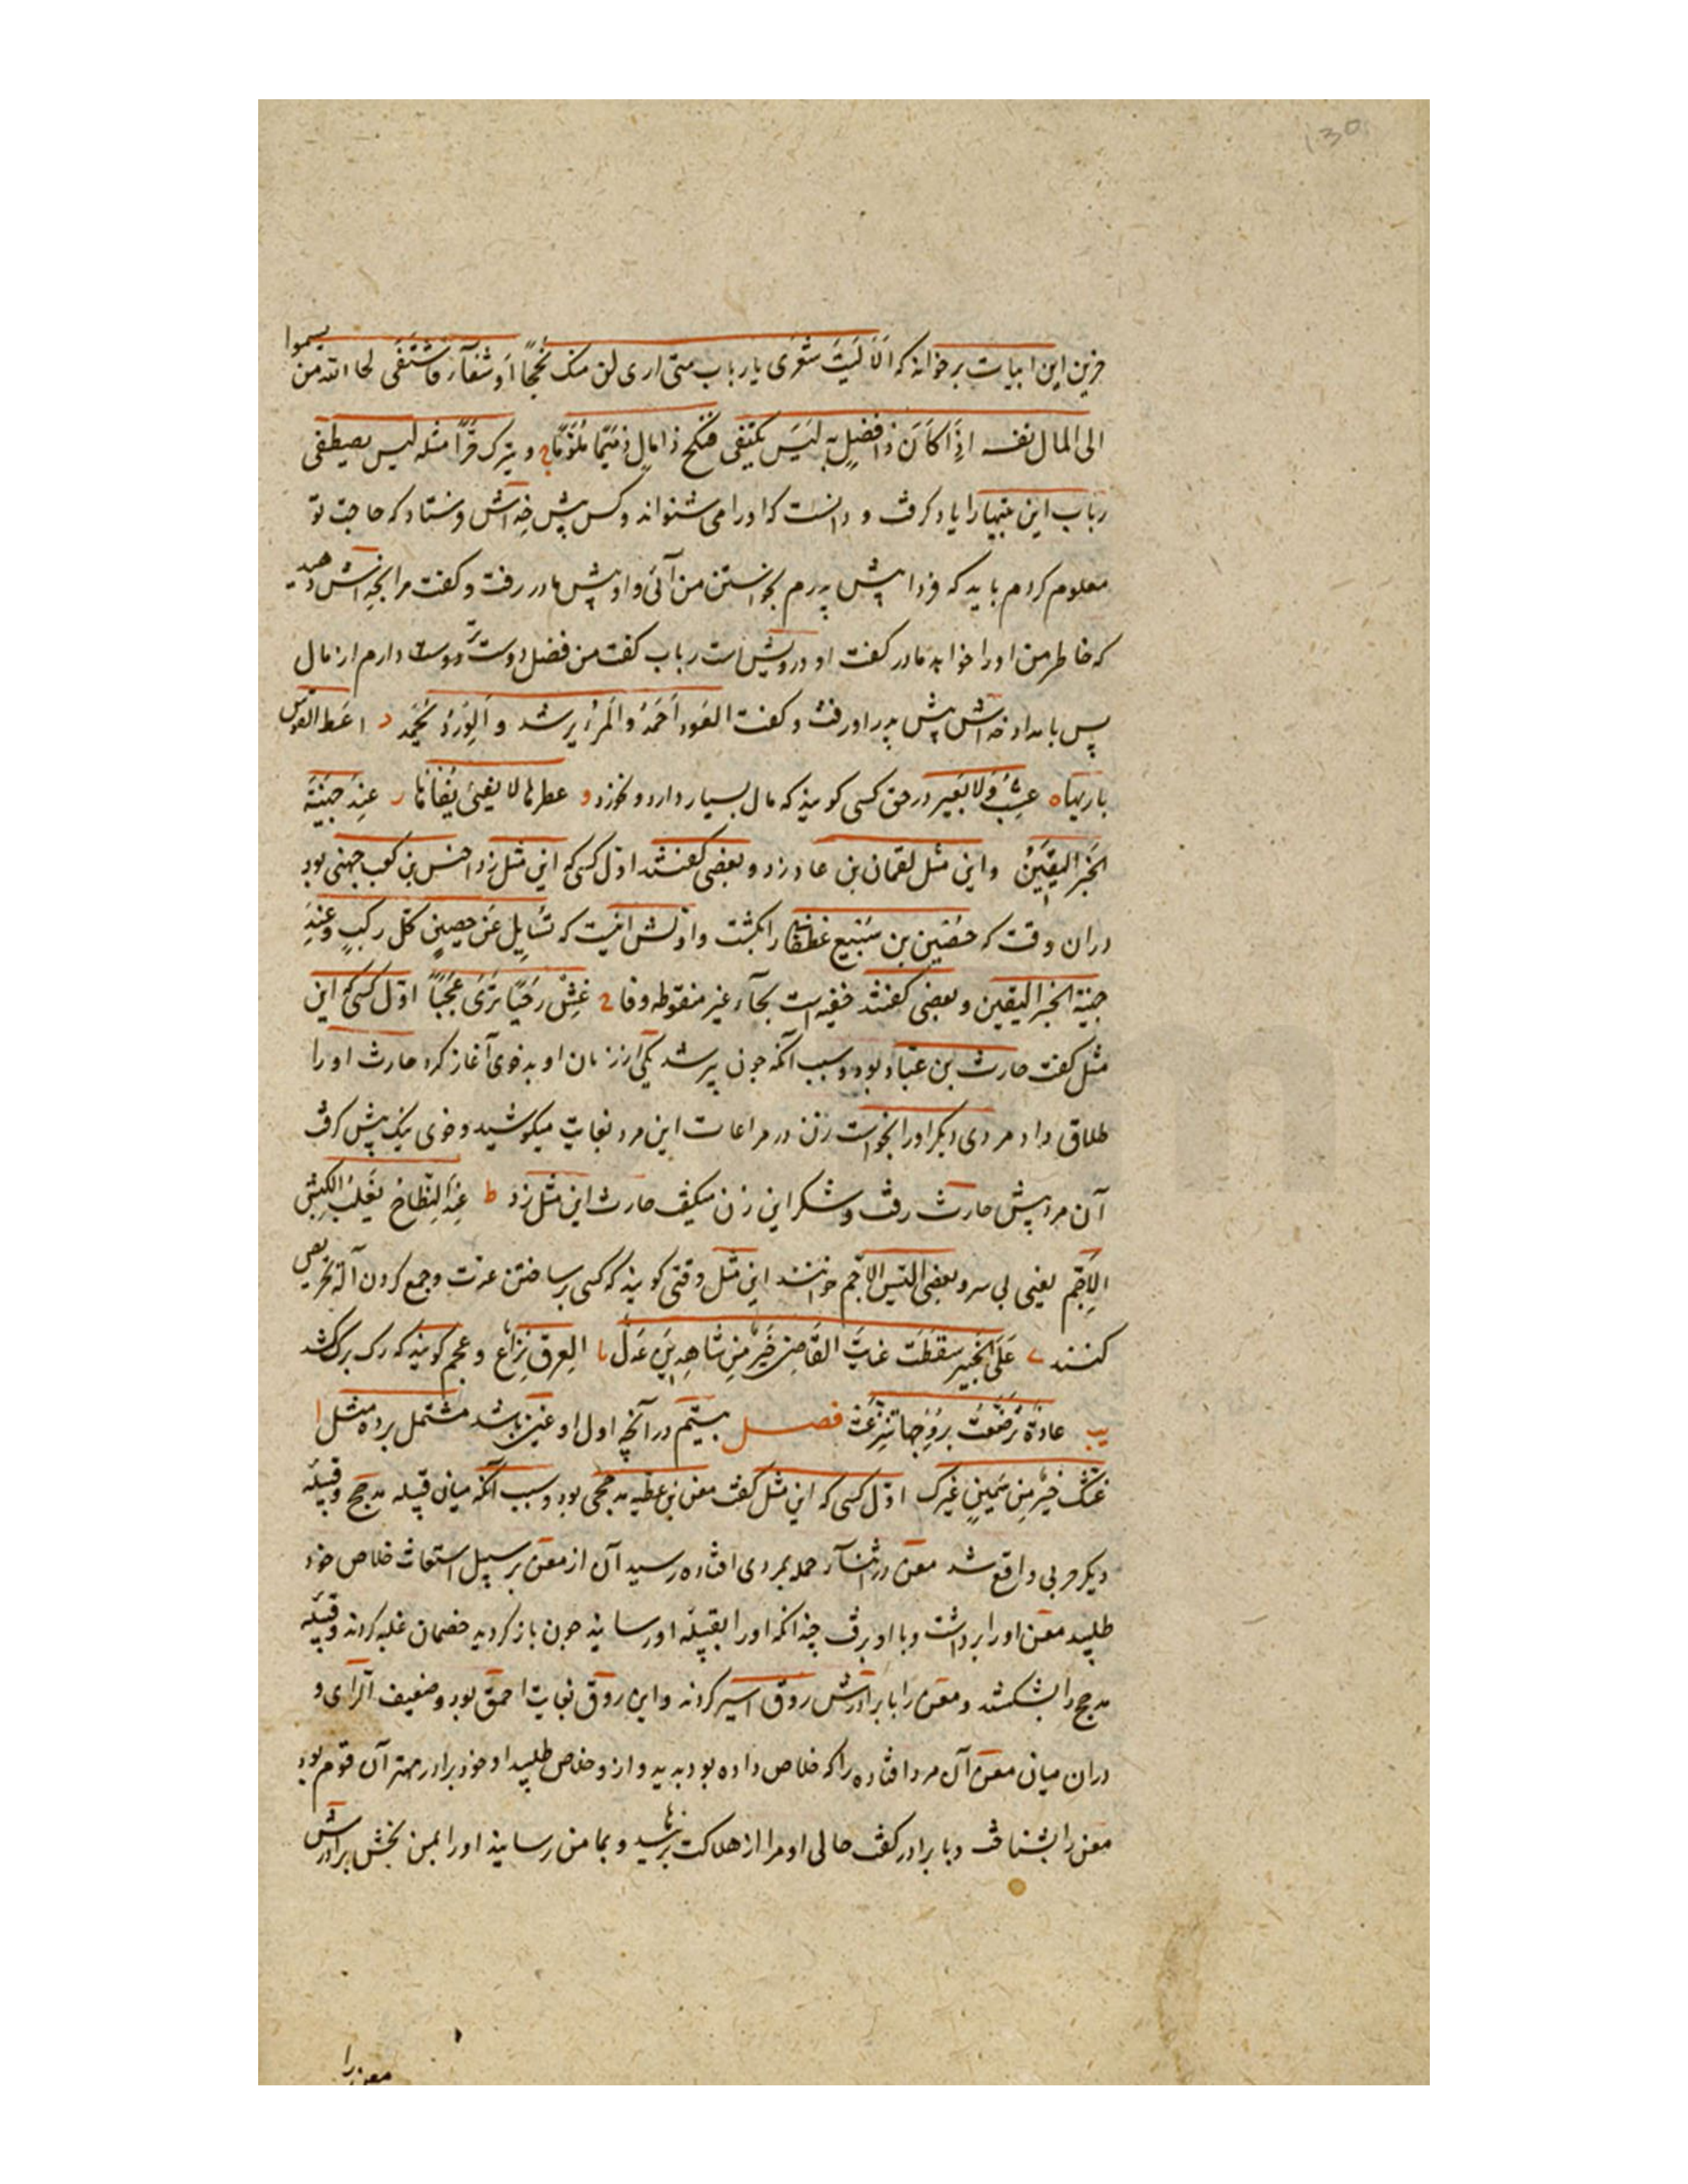 حزین این ابیات برخواند که اَلَا لَیتَ شَعْرَی یا رباب متی اری لنا منک نُجحًا اَو شفآءً فَاَشْتَفَی لحا الله من یسموا
الی المال نفسه اِذَا کَانَ ذا فضلٍ بِه لَیسَ یکتفی فَینکح ذا مالٍ ذمیمًا مُلَوّمًا و یترک حُرًّا مثله لیس یصیطفی
رباب این بیتها را یاد گرفت و دانست که او را می شنواند و کس پیش خداش فرستاد که حاجت تو
معلوم کردم باید که فردا پیش پدرم بخواستن من آئی و او پیش مادر رفت و گفت مرا بخداش دهید
که خاطر من او را خواهد مادر گفت او درویش است رباب گفت من فضل دوست تر دارم از مال
پس بامداد خداش پیش پدر او رفت و گفت العَود اَحمَدُ وَالمَرْءُ یرشد و اَلوِردُ یُحْمَد د اعط القوس
باریها ه عِشبٌ وَلا بَعیر در حق کسی گویند که مال بسیار دارد و نخورد و عطر ها لا یفنی نفاثها ر عِندَ جفینَةَ
الخَبَر الیقین و این مثل لقمان بن عاد زد و بعضی گفتند اول کسی که این مثل زد اخنس بن کعب جهنی بود
دران وقت که حُصَین بن سُبَیع غطفانی را بکشت و اولش اینست که تُسایِل عَن حصینٍ کُل رکبٍ وَعِندَ
جفینة الخبر الیقین و بعضی گفتند حفینه است بحآء غیر منقوطه و فا ح عِشْ رَجَبًا تَرَی عَجَبًا اول کسی که این
مثل گفت حارث بن عبّاد بود و سبب آنکه جون پیر شد یکی از زنان او بدخوی آغاز کرد حارث او را
طلاق داد مردی دیگر او را بخواست زن در مراعات این مرد بغایت میکوشید و خوی نیک پیش گرفت
آن مرد پیش حارث رفت و شکر این زن میگفت حارث این مثل زد ط عِندَ النِّطَاح یَغلِبُ الکبش
الاَجَم یعنی بی سرو و بعضی التیس الاجم خوانند این مثل وقتی گویند که کسی بر ساختن عدت و جمع کردن آلة تحریص
کنند ی عَلَی الخَبیر سَقَطْتَ عَنَایَة القَاضِی خَیرٌ مِن شاهِدَین عَدل یا العِرق نزاع و عجم گویند که رگ برگ کشد
یب عادة تَرضَّعَت بِرُوحها تنزعت فصل بیستم در آنچه اول او غین باشد مشتمل بر ده مثل ا
غَثُّکَ خیرٌ مِن سَمینِ غیرک اول کسی که این مثل گفت معن بن عطیه مدحجی بود و سبب آنکه میان قبیله مدحج و قبیله
دیگر حربی واقع شد معن در اثنآء حمله بمردی افتاده رسید آن از معن بر سبیل استغاثت خلاص خود
طلبید معن او را برداشت و با او برفت چندانکه او را بقبیله او رسانید جون باز گردید خصمان غلبه کردند و قبیله
مدحج را بشکستند و معن را با برادرش روق اسیر کردند و این روق بغایت احمق بود و ضعیف الرای و
دران میان معن آن مرد افتاده را که خلاص داده بود بدید و ازو خلاص طلبید او خود برادر مهتر آن قوم بود
معن را بشناخت و با برادر گفت حالی او مرا از هلاکت برهانید و بمامن رسانید او را بمن بخش برادرش
معن را